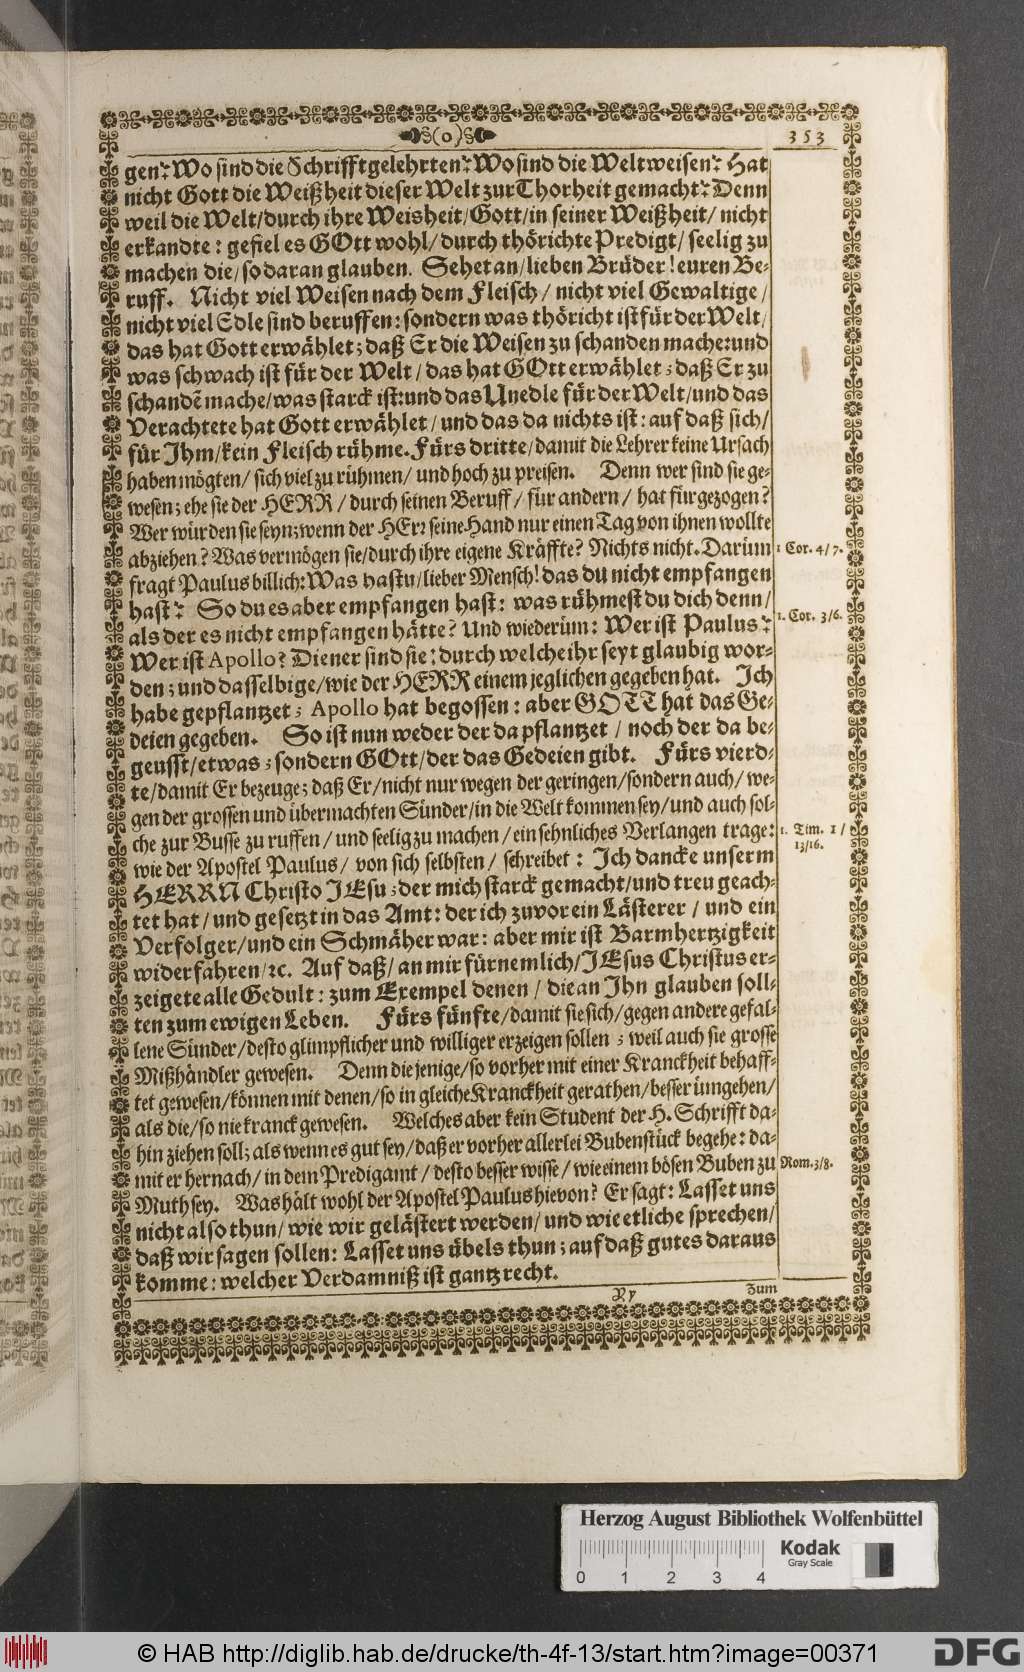 (o)
353
gen? Wo sind die Schrifftgelehrten? Wo sind die Weltweisen? Hat
nicht Gott die Weißheit dieser Welt zur Thorheit gemacht? Denn
weil die Welt/durch ihre Weisheit/Gott/in seiner Weißheit/ nicht
erkandte: gefiel es GOtt wohl/ durch thörichte Predigt/ seelig zu
machen die/ so daran glauben. Sehet an/ lieben Brüder! euren Be-
ruff. Nicht viel Weisen nach dem Fleisch/ nicht viel Gewaltige/
nicht viel Edle sind beruffen: sondern was thöricht ist für der Welt/
das hat Gott erwählet; daß Er die Weisen zu schanden mache: und
was schwach ist für der Welt/ das hat GOtt erwählet; daß Er zu
schandẽ mache/ was starck ist: und das Unedle für der Welt/ und das
Verachtete hat Gott erwählet/ und das da nichts ist: auf daß sich/
für Ihm/ kein Fleisch rühme. Fürs dritte/ damit die Lehrer keine Ursach
haben mögten/ sich viel zu rühmen/ und hoch zu preisen. Denn wer sind sie ge-
wesen; ehe sie der HERR/ durch seinen Beruff/ für andern/ hat fürgezogen?
Wer würden sie seyn; wenn der HErr seine Hand nur einen Tag von ihnen wollte
abziehen? Was vermögen sie/ durch ihre eigene Kräffte? Nichts nicht. Darüm
1 Cor. 4/7.
fragt Paulus billich: Was hastu/ lieber Mensch! das du nicht empfangen
hast? So du es aber empfangen hast: was rühmest du dich denn/
1. Cor. 3/6.
als der es nicht empfangen hätte? Und wiederüm: Wer ist Paulus?
Wer ist Apollo? Diener sind sie; durch welche ihr seyt glaubig wor-
den; und dasselbige/ wie der HERR einem jeglichen gegeben hat. Ich
habe gepflantzet; Apollo hat begossen: aber GOTT hat das Ge-
deien gegeben. So ist nun weder der da pflantzet/ noch der da be-
geusst/ etwas; sondern GOtt/ der das Gedeien gibt. Fürs vierd-
te/ damit Er bezeuge; daß Er/ nicht nur wegen der geringen/ sondern auch/ we-
gen der grossen und übermachten Sünder/ in die Welt kommen sey/ und auch sol-
che zur Busse zu ruffen/ und seelig zu machen/ ein sehnliches Verlangen trage:
1. Tim. 1/
13/16.
wie der Apostel Paulus/ von sich selbsten/ schreibet: Ich dancke unserm
HERRN Christo JEsu; der mich starck gemacht/ und treu geach-
tet hat/ und gesetzt in das Amt: der ich zuvor ein Lästerer/ und ein
Verfolger/ und ein Schmäher war: aber mir ist Barmhertzigkeit
widerfahren/ ꝛc. Auf daß/ an mir fürnemlich/ JEsus Christus er-
zeigete alle Gedult: zum Exempel denen/ die an Ihn glauben soll-
ten zum ewigen Leben. Fürs fünfte/ damit sie sich/ gegen andere gefal-
lene Sünder/ desto glimpflicher und williger erzeigen sollen; weil auch sie grosse
Mißhändler gewesen. Denn die jenige/ so vorher mit einer Kranckheit behaff-
tet gewesen/ können mit denen/ so in gleiche Kranckheit gerathen/ besser ümgehen/
als die/ so nie kranck gewesen. Welches aber kein Student der H. Schrifft da-
hin ziehen soll; als wenn es gut sey/ daß er vorher allerlei Bubenstück begehe: da-
mit er hernach/ in dem Predigamt/ desto besser wisse/ wie einem bösen Buben zu
Rom. 3/8.
Muth sey. Was hält wohl der Apostel Paulus hievon? Er sagt: Lasset uns
nicht also thun/ wie wir gelästert werden/ und wie etliche sprechen/
daß wir sagen sollen: Lasset uns übels thun; auf daß gutes daraus
komme: welcher Verdamniß ist gantz recht.
Yy
zum
Herzog August Bibliothek Wolfenbüttel
Kodak
Gray Scale
0 1 2 3 4
© HAB http://diglib.hab.de/drucke/th-4f-13/start.htm?image=00371
DFG